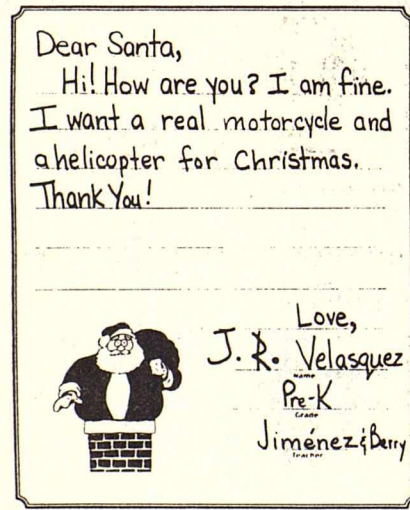 Dear Santa,
Hi! How are you? I am fine.
I want a real motorcycle and
a helicopter for Christmas.
Thank You!
Love,
J. R. Velasquez
Name
Pre-K
Grade
Jiménez & Berry
Teacher